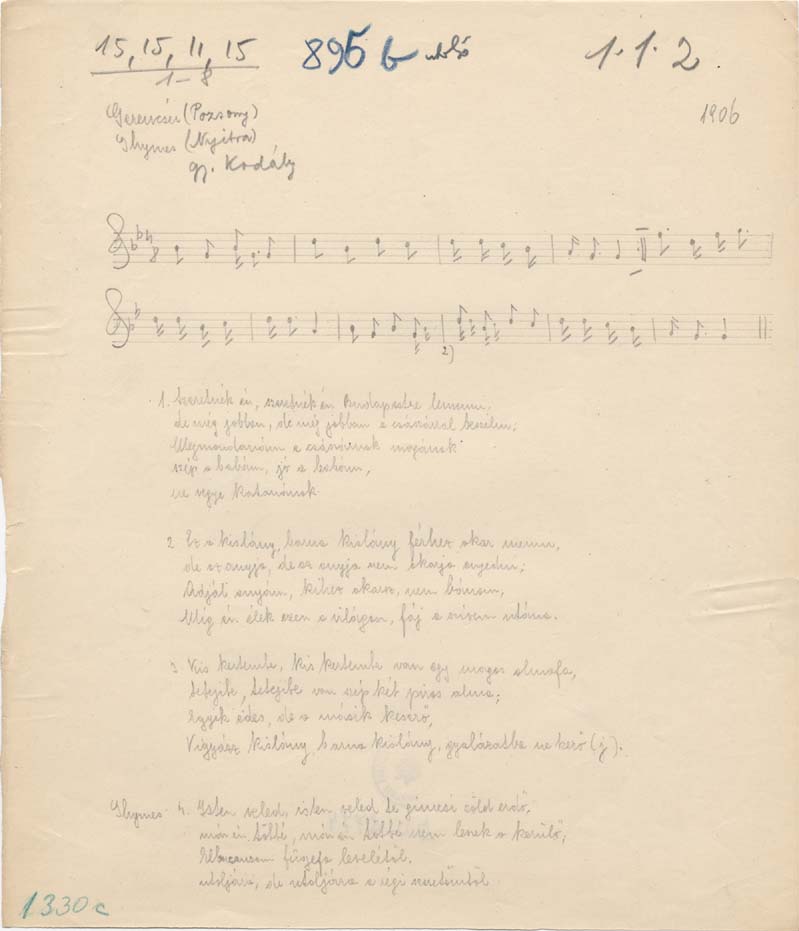 15, 15, 11, 15
1-8
895 b utolsó
1.1.2
Gerencsér (Pozsony)
Ghymes (Nyitra)
gy. Kodály
1906
2)
1. Szeretnék én, szeretnék én Budapestre lemenni,
de még jobban, de még jobban a császárral beszélni;
Megmondanám a császárnak magának
szép a babám, jó a babám,
ne vigye katonának
2. Ez a kislány, barna kislány férhez akar menni,
de az anyja, de az anyja nem akarja engedni;
Adjál anyám, kihez akarsz, nem bánom,
Míg én élek ezen a világon, fáj a szívem utána.
3. Kis kertembe, kis kertembe van egy magos almafa,
tetejibe, tetejibe van szép két piros alma;
egyik édes, de a másik keserő,
Vigyázz kislány, barna kislány, gyalázatba ne kerő (j).
Ghymes 4. Isten veled, isten veled te gimesi ződ erdő,
mán én többé, mán én többé nem leszek a kerülő;
fűzfa levelétől,
utoljára, de utoljára a régi szeretőmtől
1330 c